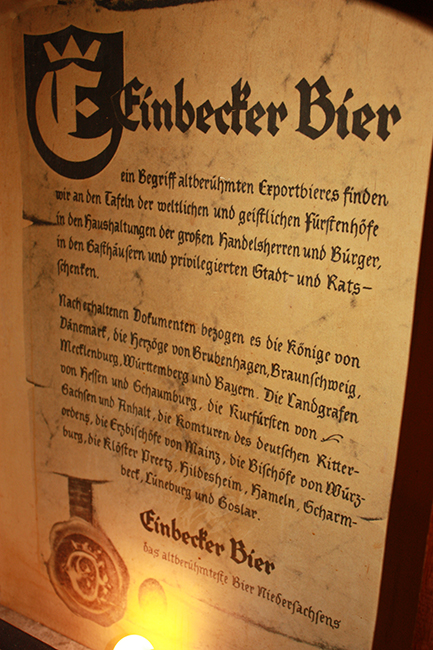 Einbecker Bier
ein Begriff altberühmten Exportbieres finden
wir an den Tafeln der weltlichen und geistlichen Fürstenhöfe
in den Haushaltungen der großen Handelsherren und Bürger,
in den Gasthäusern und privilegierten Stadt- und Rats-
schenken.
Nach erhaltenen Dokumenten bezogen es die Könige von
Dänemark, die Herzöge von Grubenhagen, Braunschweig,
Mecklenburg, Württemberg und Bayern. Die Landgrafen
von Hessen und Schaumburg, die Kurfürsten von
Sachsen und Anhalt, die Komturen des deutschen Ritter-
ordens, die Erzbischöfe von Mainz, die Bischöfe von Würz-
burg, die Klöster Preetz, Hildesheim, Hameln, Scharm-
beck, Lüneburg und Goslar.
Einbecker Bier
das altberühmteste Bier Niedersachsens